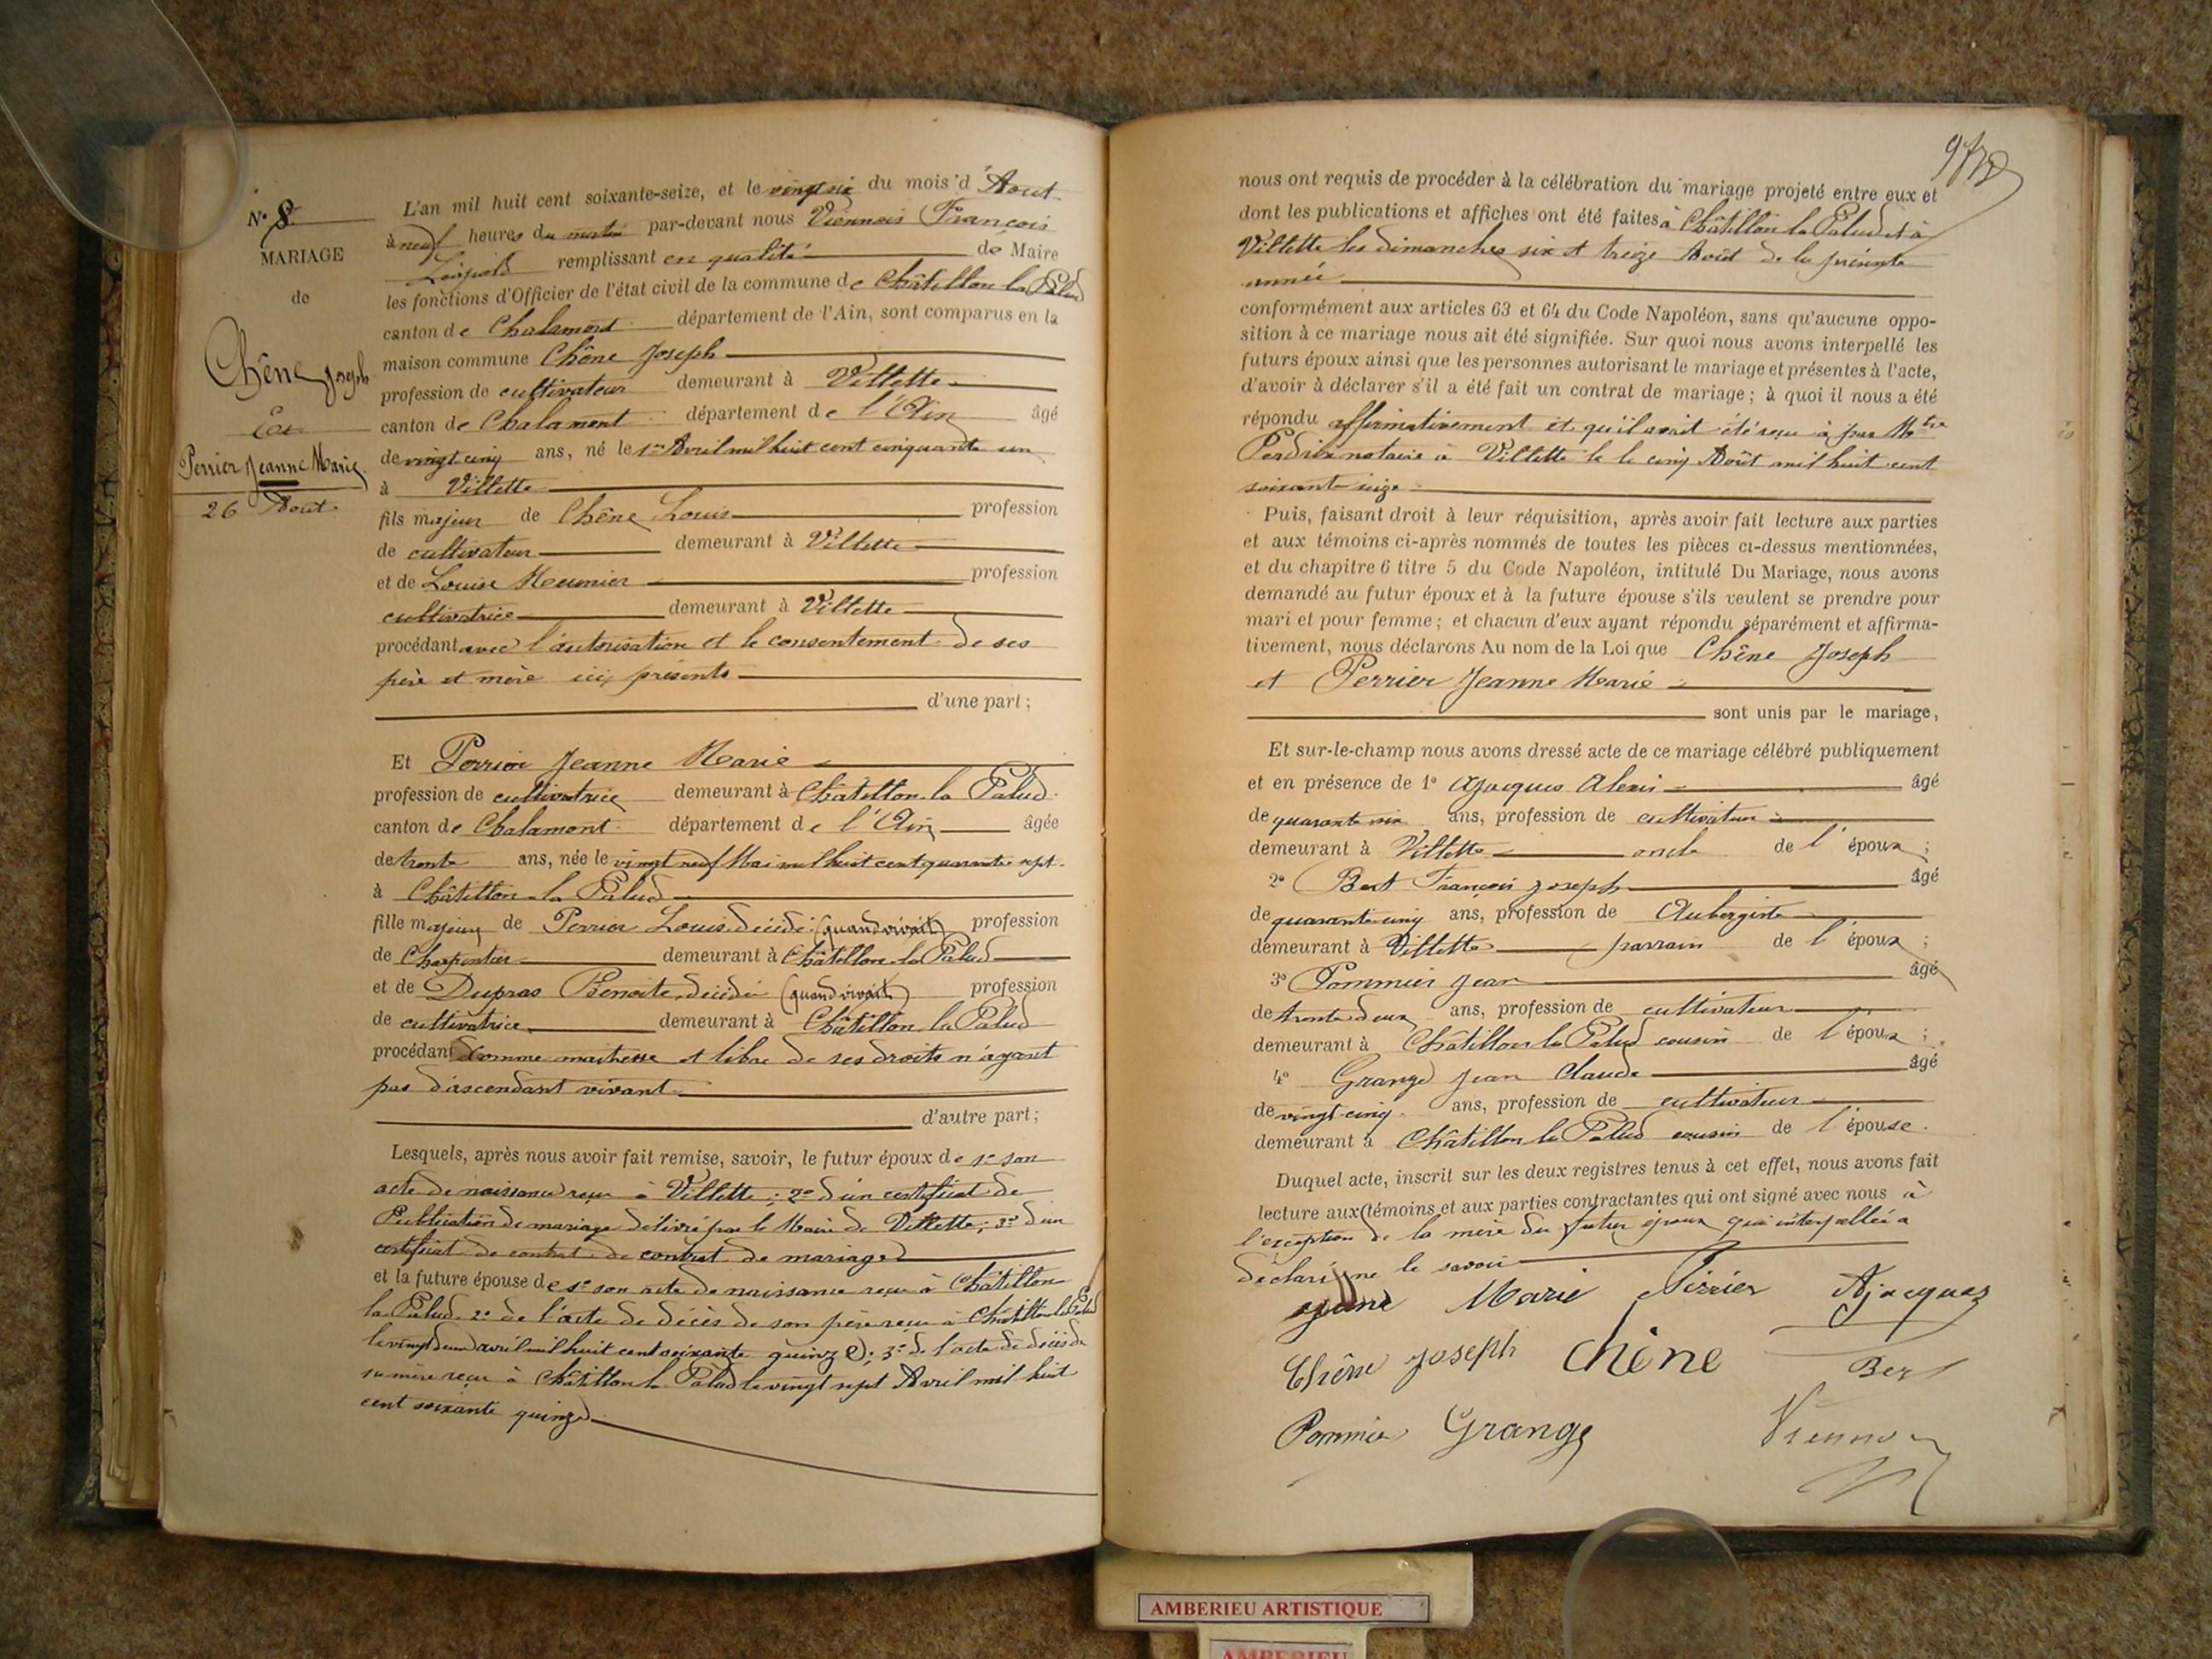 N° 8
MARIAGE
de
Chêne Joseph
Et
Perrier Jeanne Marie
26 Aout
L'an mil huit cent soixante-seize, et le vingt six du mois d'Aout
à neuf heures du matin par-devant nous Viennois François
Léopold remplissant en qualité de Maire
les fonctions d'Officier de l'état civil de la commune de Châtillon la Palud
canton de Chalamont département de l'Ain, sont comparus en la
maison commune Chêne Joseph
profession de cultivateur demeurant à Villette
canton de Chalamont département de l'Ain âgé
de vingt cinq ans, né le 1er Avril mil huit cent cinquante un
à Villette
fils majeur de Chêne Louis profession
de cultivateur demeurant à Villette
et de Louise Meunier profession
cultivatrice demeurant à Villette
procédant avec l'autorisation et le consentement de ses
père et mère ici présents
d'une part;
Et Perrier Jeanne Marie
profession de cultivatrice demeurant à Châtillon la Palud
canton de Chalamont département de l'Ain âgée
de trente ans, née le vingt neuf Mai mil huit cent quarante sept
à Châtillon la Palud
fille majeure de Perrier Louis décédé (quand vivait) profession
de Charpentier demeurant à Châtillon la Palud
et de Dupras Benoite décédée (quand vivait) profession
de cultivatrice demeurant à Châtillon la Palud
procédant comme maitresse et libre de ses droits n'ayant
pas d'ascendant vivant
d'autre part;
Lesquels, après nous avoir fait remise, savoir, le futur époux de 1° son
acte de naissance reçu à Villette; 2° d'un certificat de
Publication de mariage délivré par le Maire de Villette; 3° d'un
certificat de contrat de contrat de mariage
et la future épouse de 1° son acte de naissance reçu à Châtillon
la Palud 2° de l'acte de décès de son père reçu à Châtillon la Palud
le vingt deux avril mil huit cent soixante quinze; 3° de l'acte de décès de
sa mère reçu à Châtillon la Palud le vingt sept Avril mil huit
cent soixante quinze
nous ont requis de procéder à la célébration du mariage projeté entre eux et
dont les publications et affiches ont été faites à Châtillon la Palud et à
Villette les dimanches six et treize Août de la présente
année
conformément aux articles 63 et 64 du Code Napoléon, sans qu'aucune oppo-
sition à ce mariage nous ait été signifiée. Sur quoi nous avons interpellé les
futurs époux ainsi que les personnes autorisant le mariage et présentes à l'acte,
d'avoir à déclarer s'il a été fait un contrat de mariage; à quoi il nous a été
répondu affirmativement et qu'il avait été reçu à par Mtre
notaire à Villette le le cinq Août mil huit cent
soixante seize
Puis, faisant droit à leur réquisition, après avoir fait lecture aux parties
et aux témoins ci-après nommés de toutes les pièces ci-dessus mentionnées,
et du chapitre 6 titre 5 du Code Napoléon, intitulé Du Mariage, nous avons
demandé au futur époux et à la future épouse s'ils veulent se prendre pour
mari et pour femme; et chacun d'eux ayant répondu séparément et affirma-
tivement, nous déclarons Au nom de la Loi que Chêne Joseph
et Perrier Jeanne Marie
sont unis par le mariage,
Et sur-le-champ nous avons dressé acte de ce mariage célébré publiquement
et en présence de 1° Ajacques Alexis âgé
de quarante six ans, profession de cultivateur
demeurant à Villette oncle de l'époux;
2° Bert François Joseph âgé
de quarante cinq ans, profession de Aubergiste
demeurant à Villette parrain de l'époux;
3° Pommier Jean âgé
de trente deux ans, profession de cultivateur
demeurant à Châtillon la Palud cousin de l'époux;
4° Grange Jean Claude âgé
de vingt cinq ans, profession de cultivateur
demeurant à Châtillon la Palud cousin de l'épouse.
Duquel acte, inscrit sur les deux registres tenus à cet effet, nous avons fait
lecture aux témoins et aux parties contractantes qui ont signé avec nous à
l'exception de la mère du futur époux qui interpellée a
déclaré ne le savoir
Marie Perrier Ajacques
Chêne Joseph Chêne Bert
Pommier Grange
AMBERIEU ARTISTIQUE
AMBERIEU